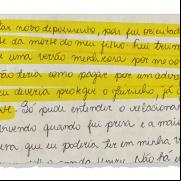 dar novo depoimento, por fui orientada
te da morte do meu filho fui
uma versão mentirosa por meio
não teria como pagar por um advo
eu deveria proteger o Jairinho, já
Só pude entender o relaciona
vivendo quando fui presa e a mai
que eu poderia ter em minha v
Não fa